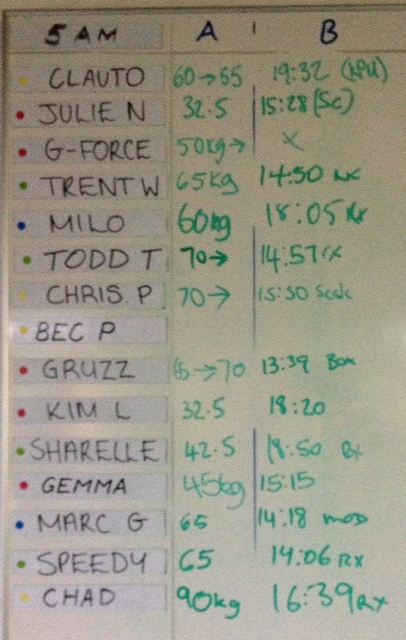 5 AM A B
CLAUTO 60→65 19:32
JULIE N 32.5 15:28 (Sc)
G-FORCE 50kg→ X
TRENT W 65kg 14:50 RX
MILO 60kg 18:05 Rx
TODD T 70→ 14:57 rx
CHRIS. P 70→ 15:30 Scale
BEC P
GRUZZ →70 13:39 Box
KIM L 32.5 18:20
SHARELLE 42.5 18:50 Rx
GEMMA 45kg 15:15
MARC G 65 14:18 mod
SPEEDY 65 14:06 RX
CHAD 90kg 16:39 RX